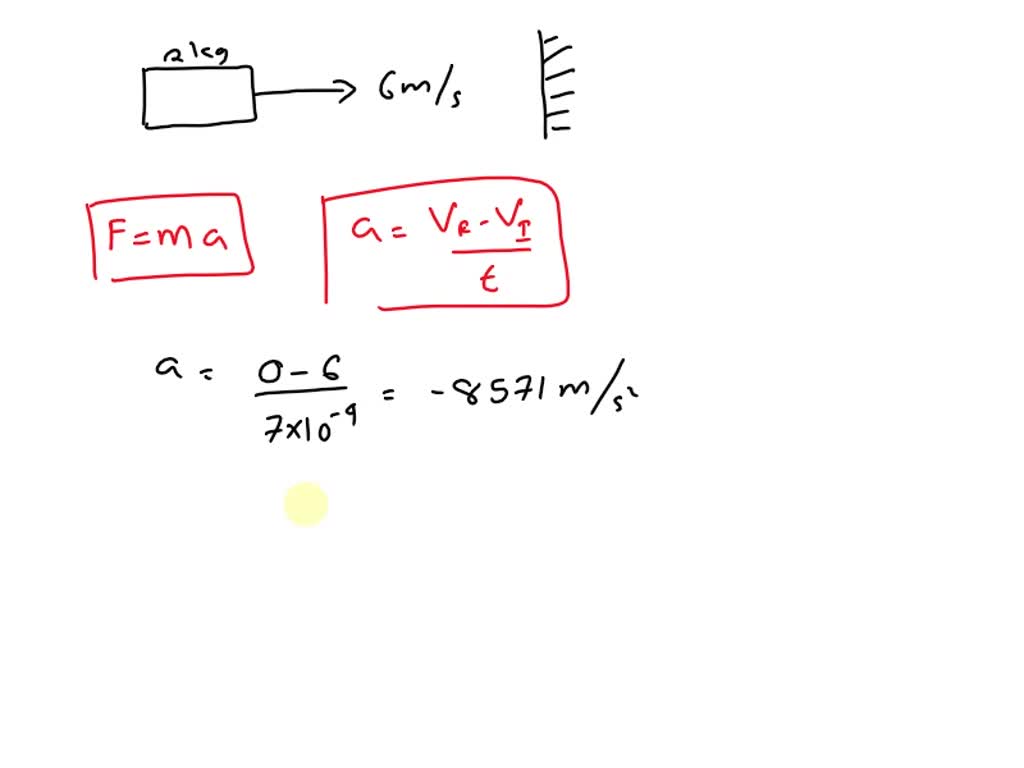 2 kg
6 m/s
F = m a
a = VR - VI / t
a = 0 - 6 / 7×10⁻⁴ = -8571 m/s²